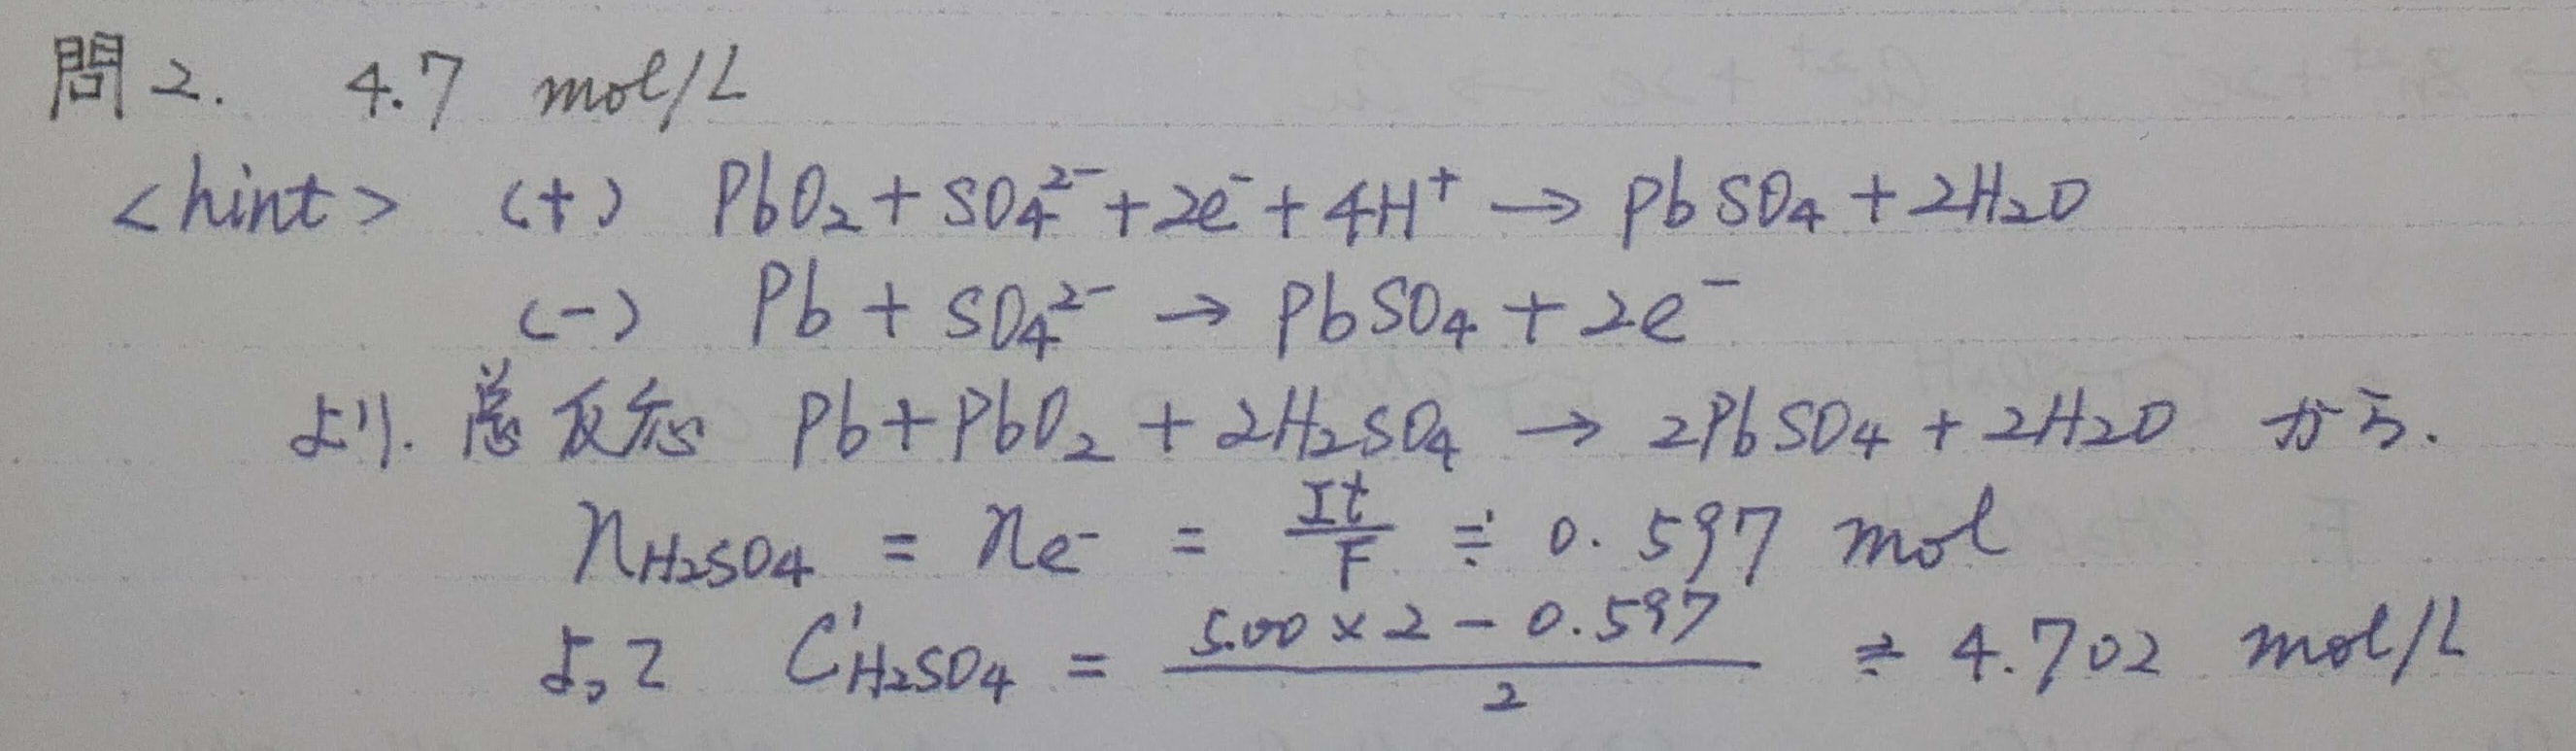 問2. 4.7 mol/L
<hint> (+) PbO₂ + SO₄²⁻ + 2e⁻ + 4H⁺ → PbSO₄ + 2H₂O
(-) Pb + SO₄²⁻ → PbSO₄ + 2e⁻
より. 总反応 Pb + PbO₂ + 2H₂SO₄ → 2PbSO₄ + 2H₂O から.
n_H₂SO₄ = n_e⁻ = It/F ≒ 0.597 mol
よって C'_H₂SO₄ = (5.00 × 2 - 0.597)/2 ≒ 4.702 mol/L